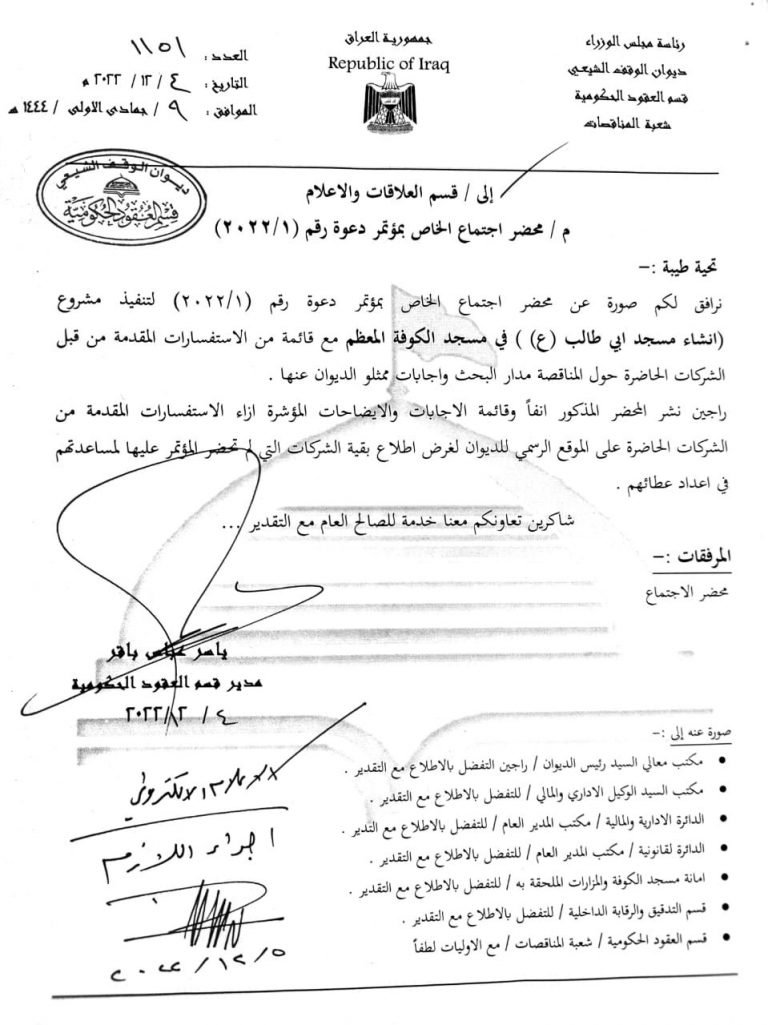 رئاسة مجلس الوزراء
ديوان الوقف الشيعي
قسم العقود الحكومية
شعبة المناقصات
جمهورية العراق
Republic of Iraq
العدد : ١١٥١
التاريخ : ٤ / ١٢ / ٢٠٢٢ م
الموافق : ٩ / جمادى الاولى / ١٤٤٤ هـ
ديوان الوقف الشيعي
قسم العقود الحكومية
إلى / قسم العلاقات والاعلام
م / محضر اجتماع الخاص بمؤتمر دعوة رقم (٢٠٢٢/١)
تحية طيبة :-
نرافق لكم صورة عن محضر اجتماع الخاص بمؤتمر دعوة رقم (٢٠٢٢/١) لتنفيذ مشروع
(انشاء مسجد ابي طالب (ع) ) في مسجد الكوفة المعظم مع قائمة من الاستفسارات المقدمة من قبل
الشركات الحاضرة حول المناقصة مدار البحث واجابات ممثلو الديوان عنها .
راجين نشر المحضر المذكور انفاً وقائمة الاجابات والايضاحات المؤشرة ازاء الاستفسارات المقدمة من
الشركات الحاضرة على الموقع الرسمي للديوان لغرض اطلاع بقية الشركات التي لم تحضر المؤتمر عليها لمساعدتهم
في اعداد عطائهم .
شاكرين تعاونكم معنا خدمة للصالح العام مع التقدير ...
المرفقات :-
محضر الاجتماع
ياسر عباس باقر
مدير قسم العقود الحكومية
٤ / ٢٠٢٢/١٢
صورة عنه إلى :-
• مكتب معالي السيد رئيس الديوان / راجين التفضل بالاطلاع مع التقدير .
• مكتب السيد الوكيل الاداري والمالي / للتفضل بالاطلاع مع التقدير .
• الدائرة الادارية والمالية / مكتب المدير العام / للتفضل بالاطلاع مع التدير .
• الدائرة لقانونية / مكتب المدير العام / للتفضل بالاطلاع مع التقدير .
• امانة مسجد الكوفة والمزارات الملحقة به / للتفضل بالاطلاع مع التقدير .
• قسم التدقيق والرقابة الداخلية / للتفضل بالاطلاع مع التقدير .
• قسم العقود الحكومية / شعبة المناقصات / مع الاوليات لطفاً
الاعلام الالكتروني
اجراء اللازم
٢٠٢٢/١٢/٥